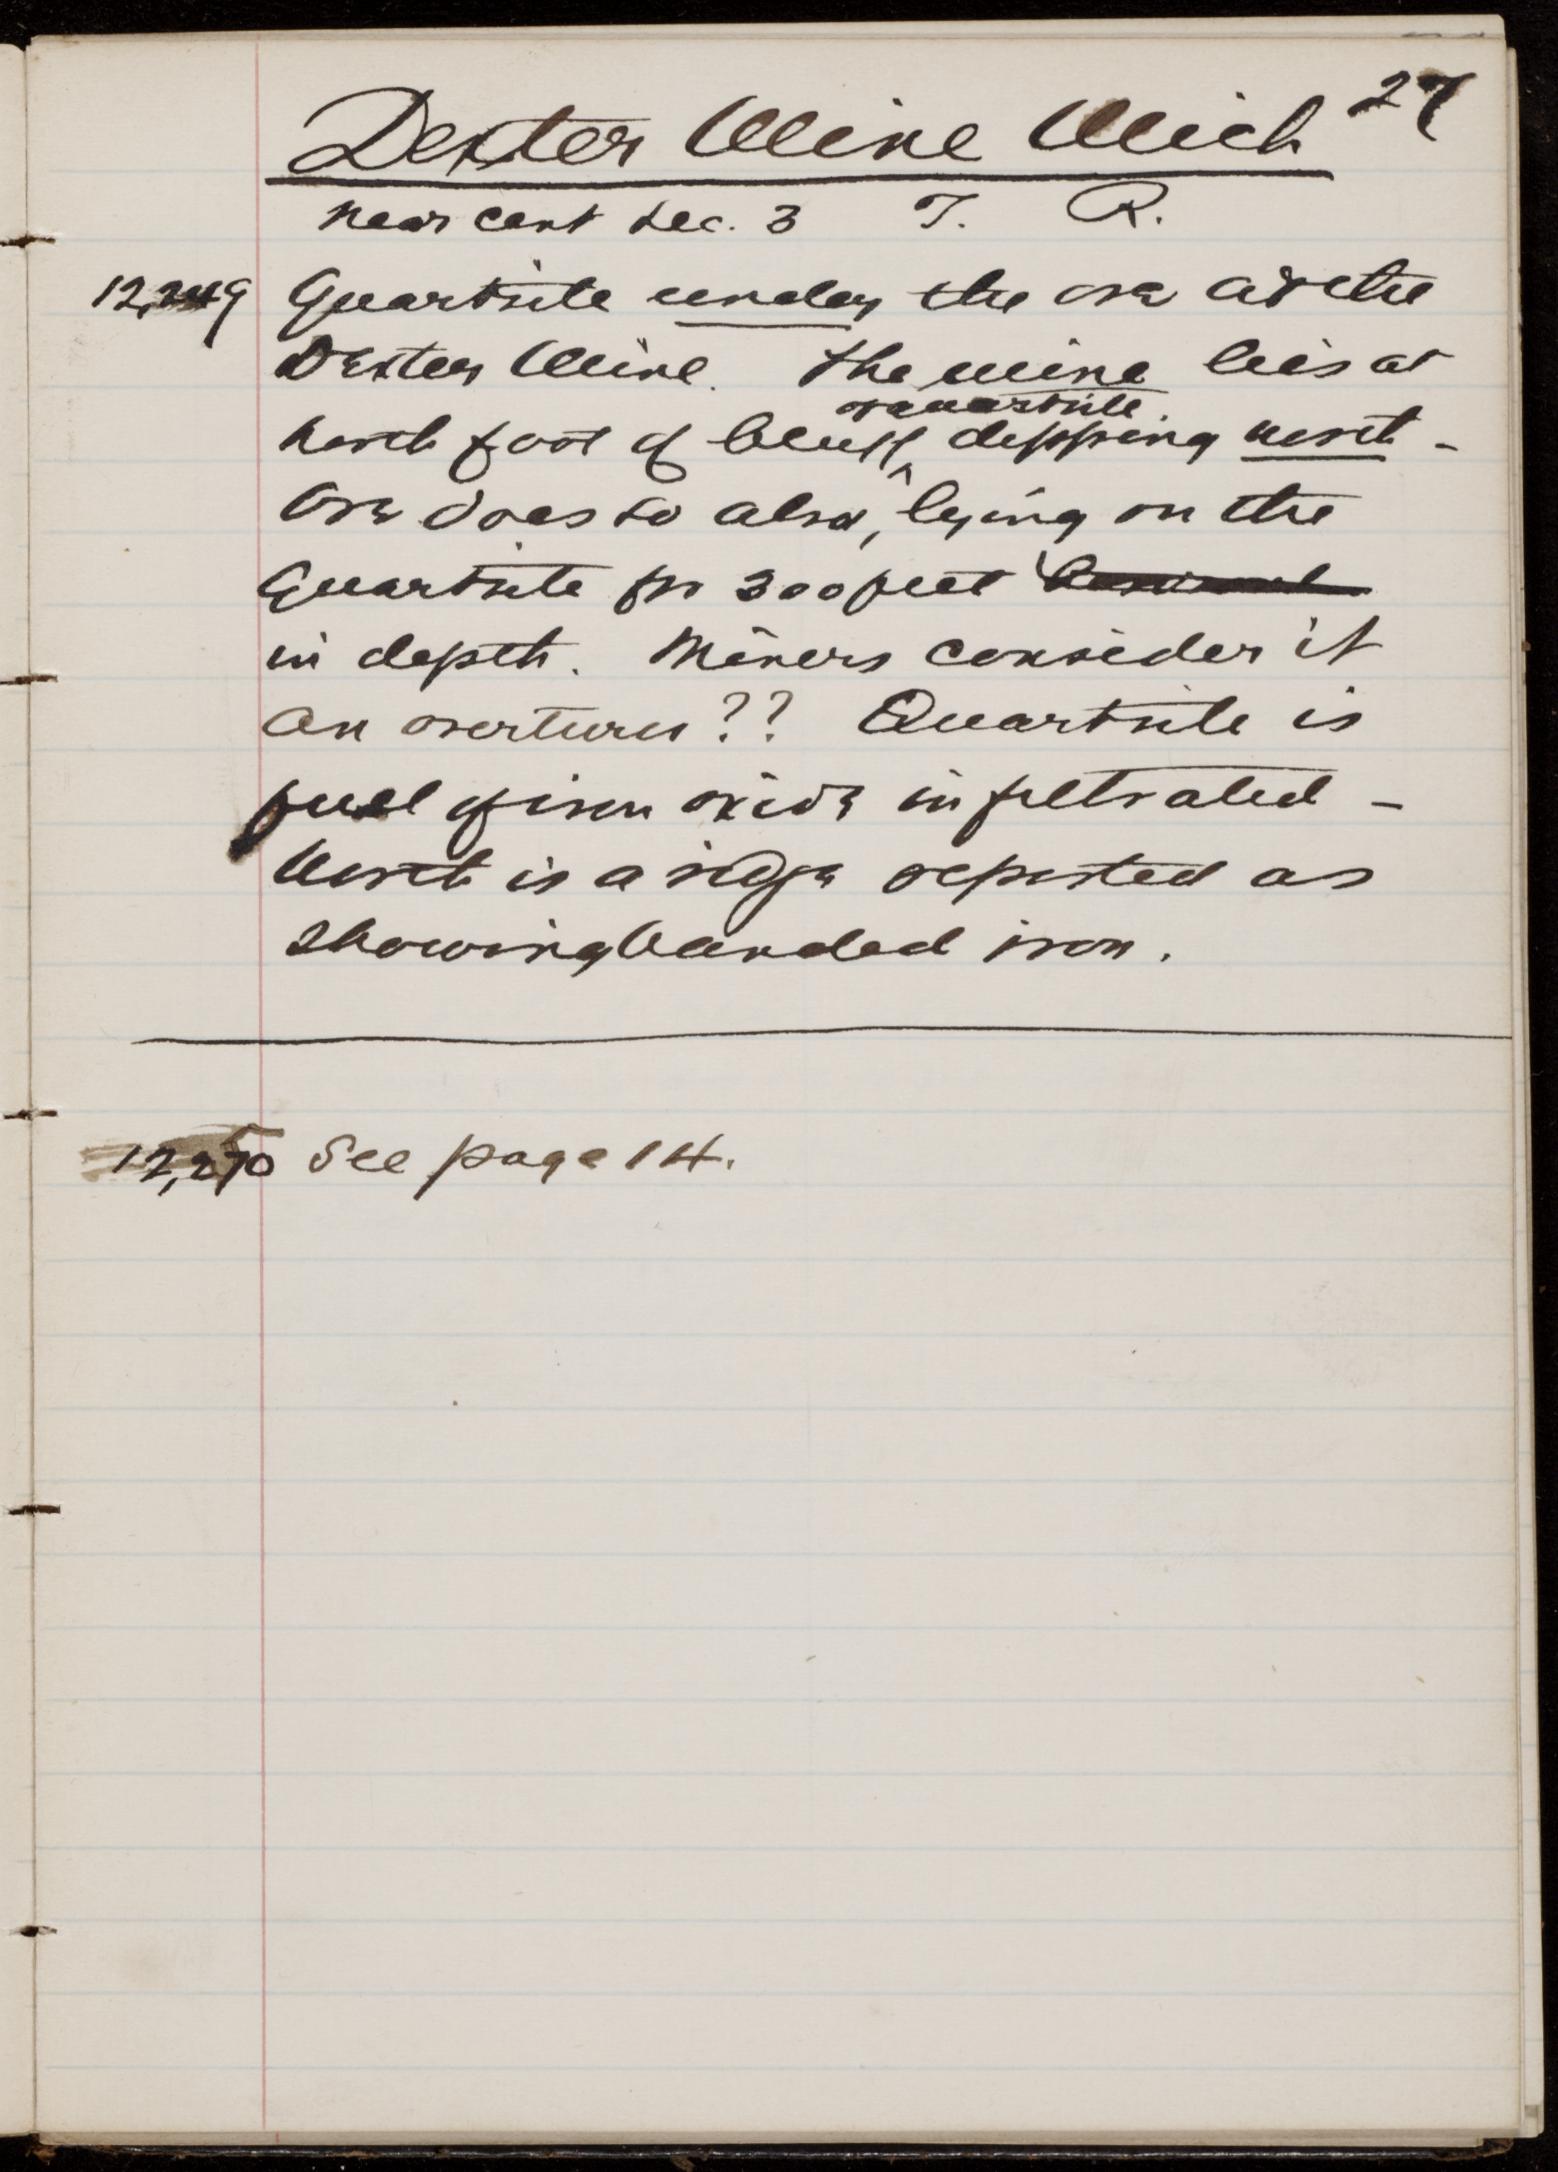 27
Dexter Mine Mich
Near cent Sec. 3 T. R.
12,249 Quartzite under the ore at the
Dexter Mine. The mine lies at
north foot of bluff of quartzite. dipping north -
Ore does so also, lying on the
Quartzite for 300 feet
in depth. Miners consider it
an overturn?? Quartzite is
full of iron oxide infiltrated -
North is a ridge reported as
showing banded iron.
12,250 See page 14.